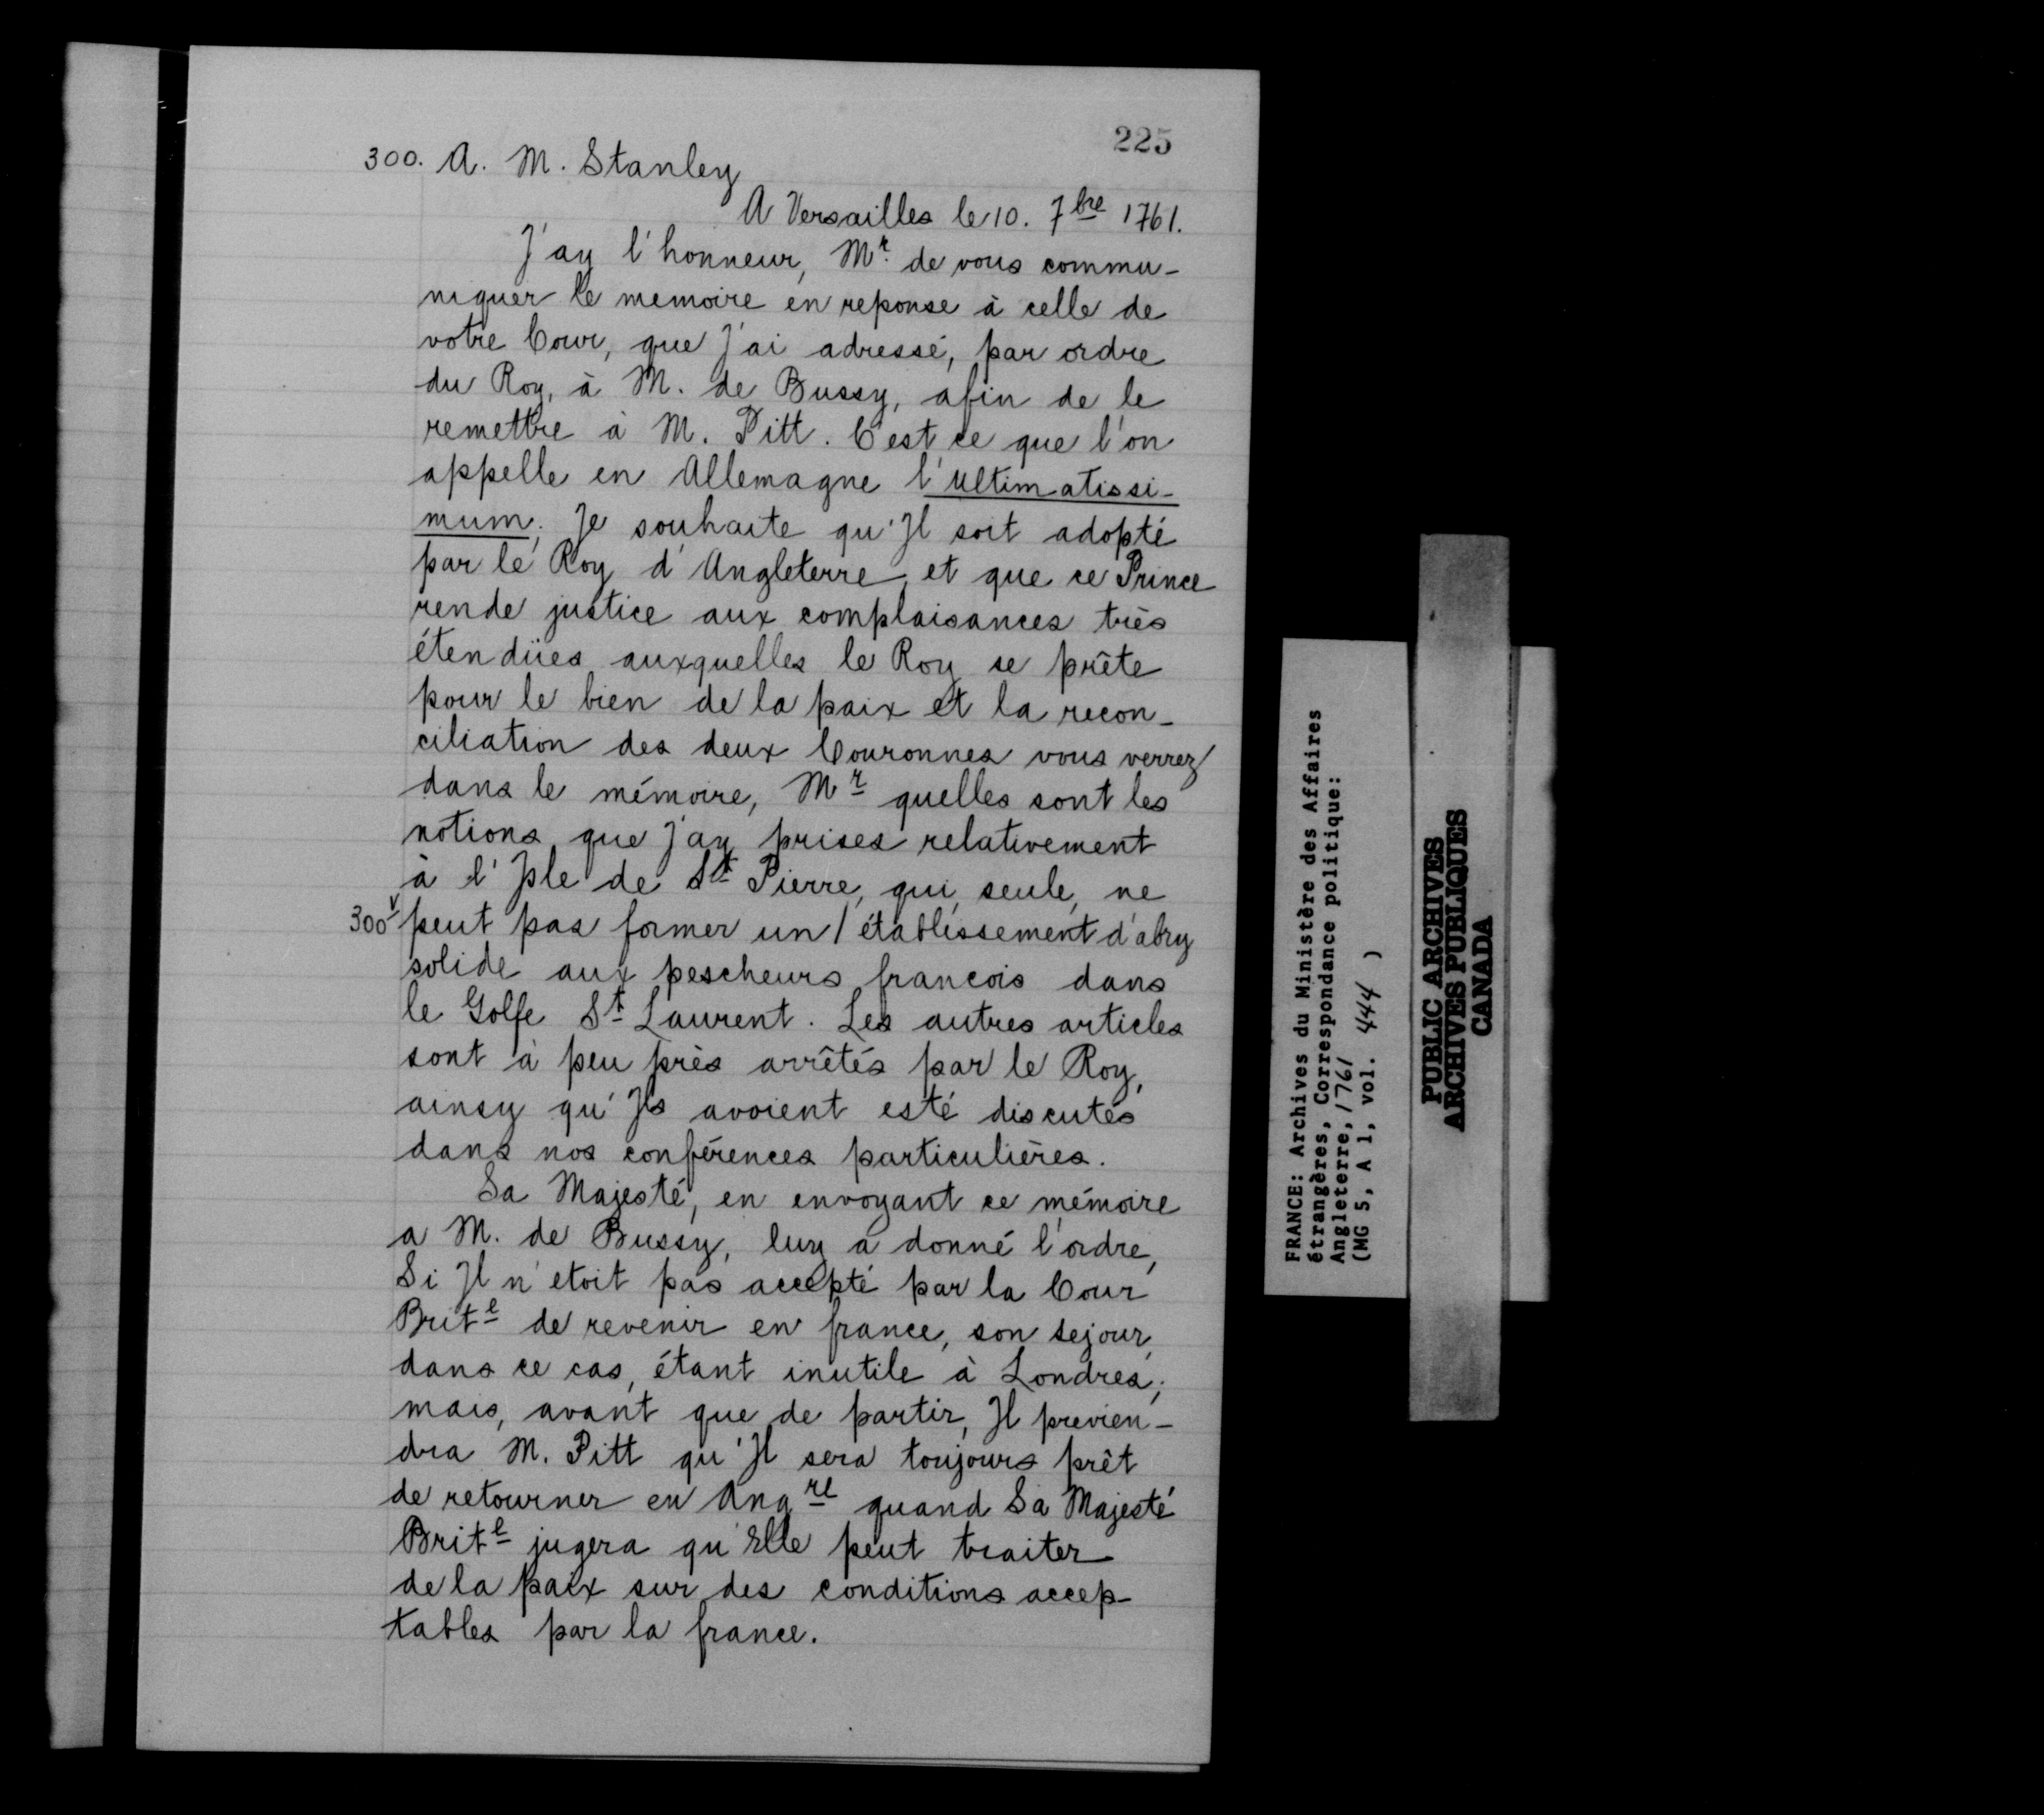 225
300. A. M. Stanley
A Versailles le 10. 7bre 1761.
J'ay l'honneur, Mr. de vous commu-
niquer le memoire en reponse à celle de
votre Cour, que J'ai adressé, par ordre
du Roy, à M. de Bussy, afin de le
remettre à M. Pitt. C'est ce que l'on
appelle en Allemagne l'Ultimatissi-
mum. Je souhaite qu'Il soit adopté
par le Roy d'Angleterre, et que ce Prince
rende justice aux complaisances très
étendües auxquelles le Roy se prête
pour le bien de la paix et la recon-
ciliation des deux Couronnes vous verrez
dans le mémoire, Mr quelles sont les
notions que J'ay prises relativement
à l'Isle de St Pierre, qui, seule, ne
300v peut pas former un / établissement d'abry
solide aux pescheurs francois dans
le Golfe St Laurent. Les autres articles
sont à peu près arrêtés par le Roy,
ainsy qu'Ils avoient esté discutés
dans nos conférences particulières.
Sa Majesté, en envoyant ce mémoire
a M. de Bussy, luy a donné l'ordre,
Si Il n'etoit pas accepté par la Cour
Brite de revenir en france, son sejour,
dans ce cas, étant inutile à Londres;
mais, avant que de partir, Il previen-
dra M. Pitt qu'Il sera toujours prêt
de retourner en Angre quand Sa Majesté
Brite jugera qu'Elle peut traiter
de la paix sur des conditions accep-
tables par la france.
FRANCE: Archives du Ministère des Affaires
étrangères, Correspondance politique:
Angleterre, 1761
(MG 5, A 1, vol. 444 )
PUBLIC ARCHIVES
ARCHIVES PUBLIQUES
CANADA